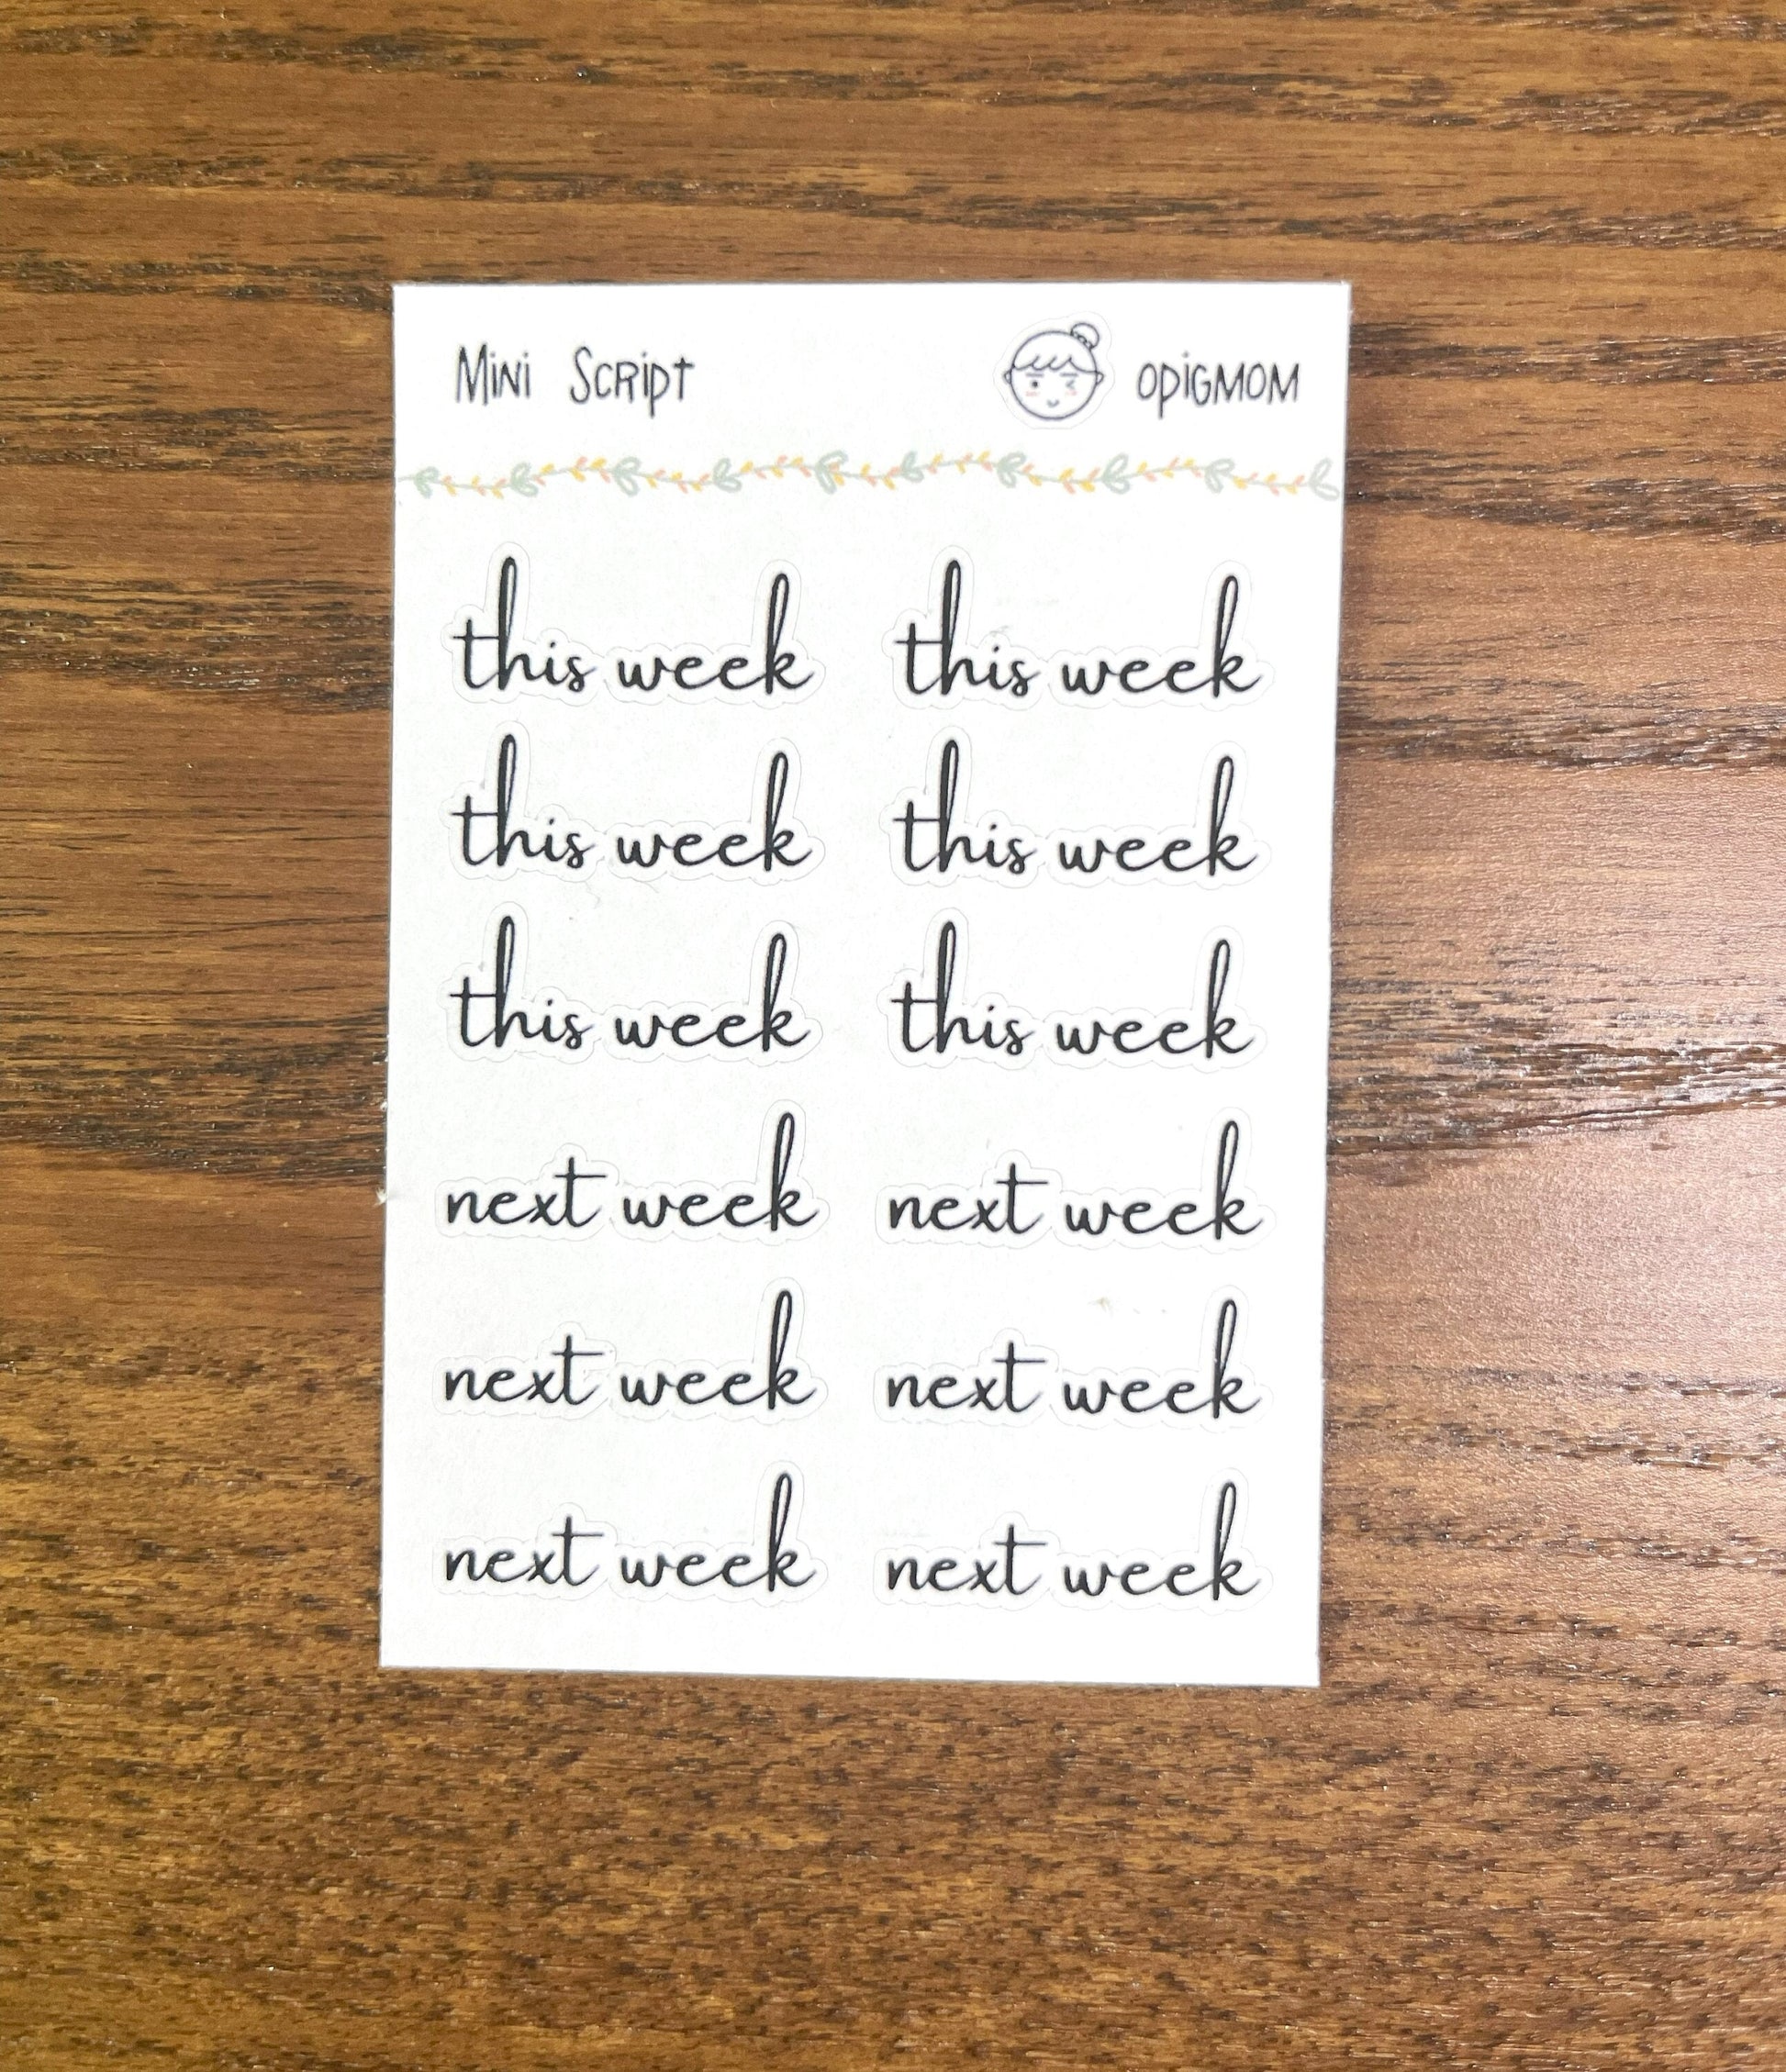 Mini Script OPIGMOM
this week this week
this week this week
this week this week
next week next week
next week next week
next week next week